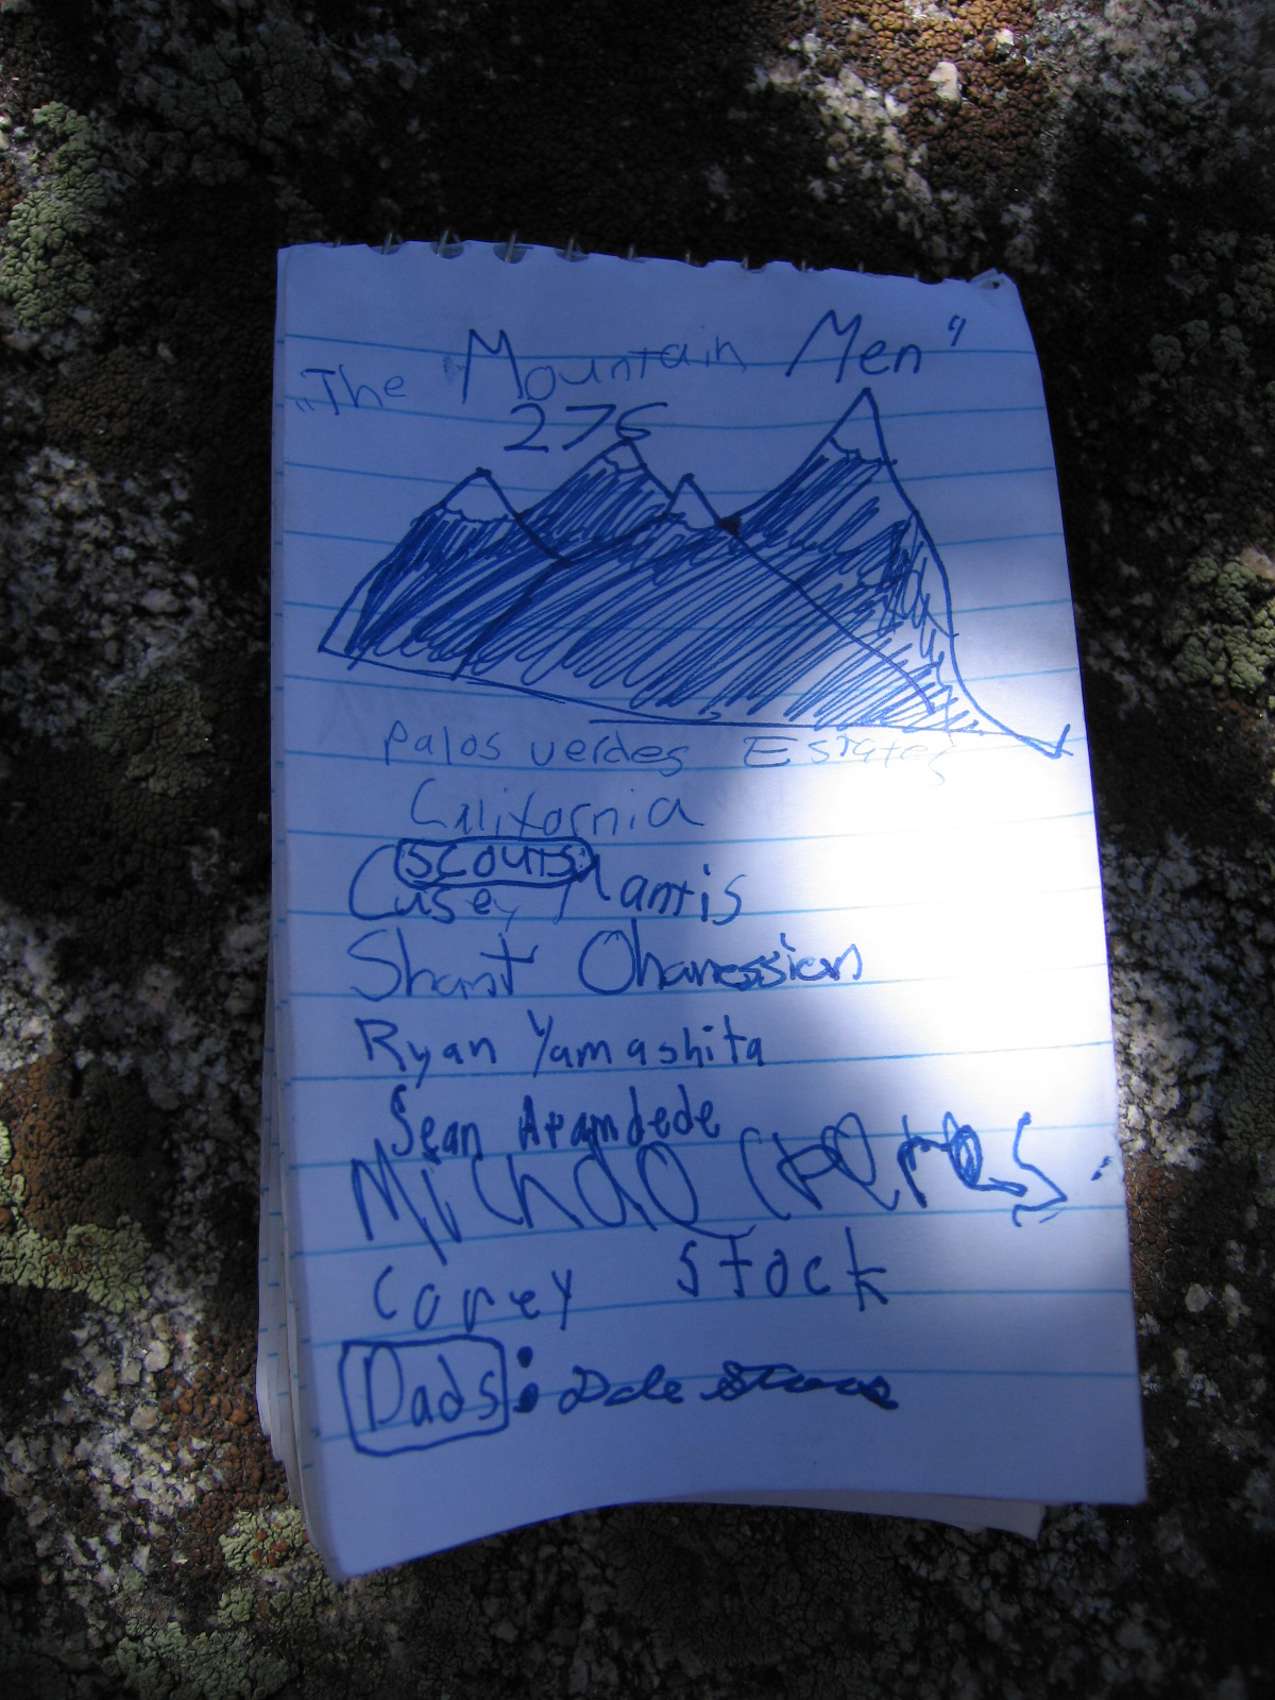 "The Mountain Men"
276
Palos verdes Estates
California
scouts
Casey Mantis
Shant Ohanessian
Ryan Yamashita
Sean Aramdede
Corey Stock
Dads: Dale